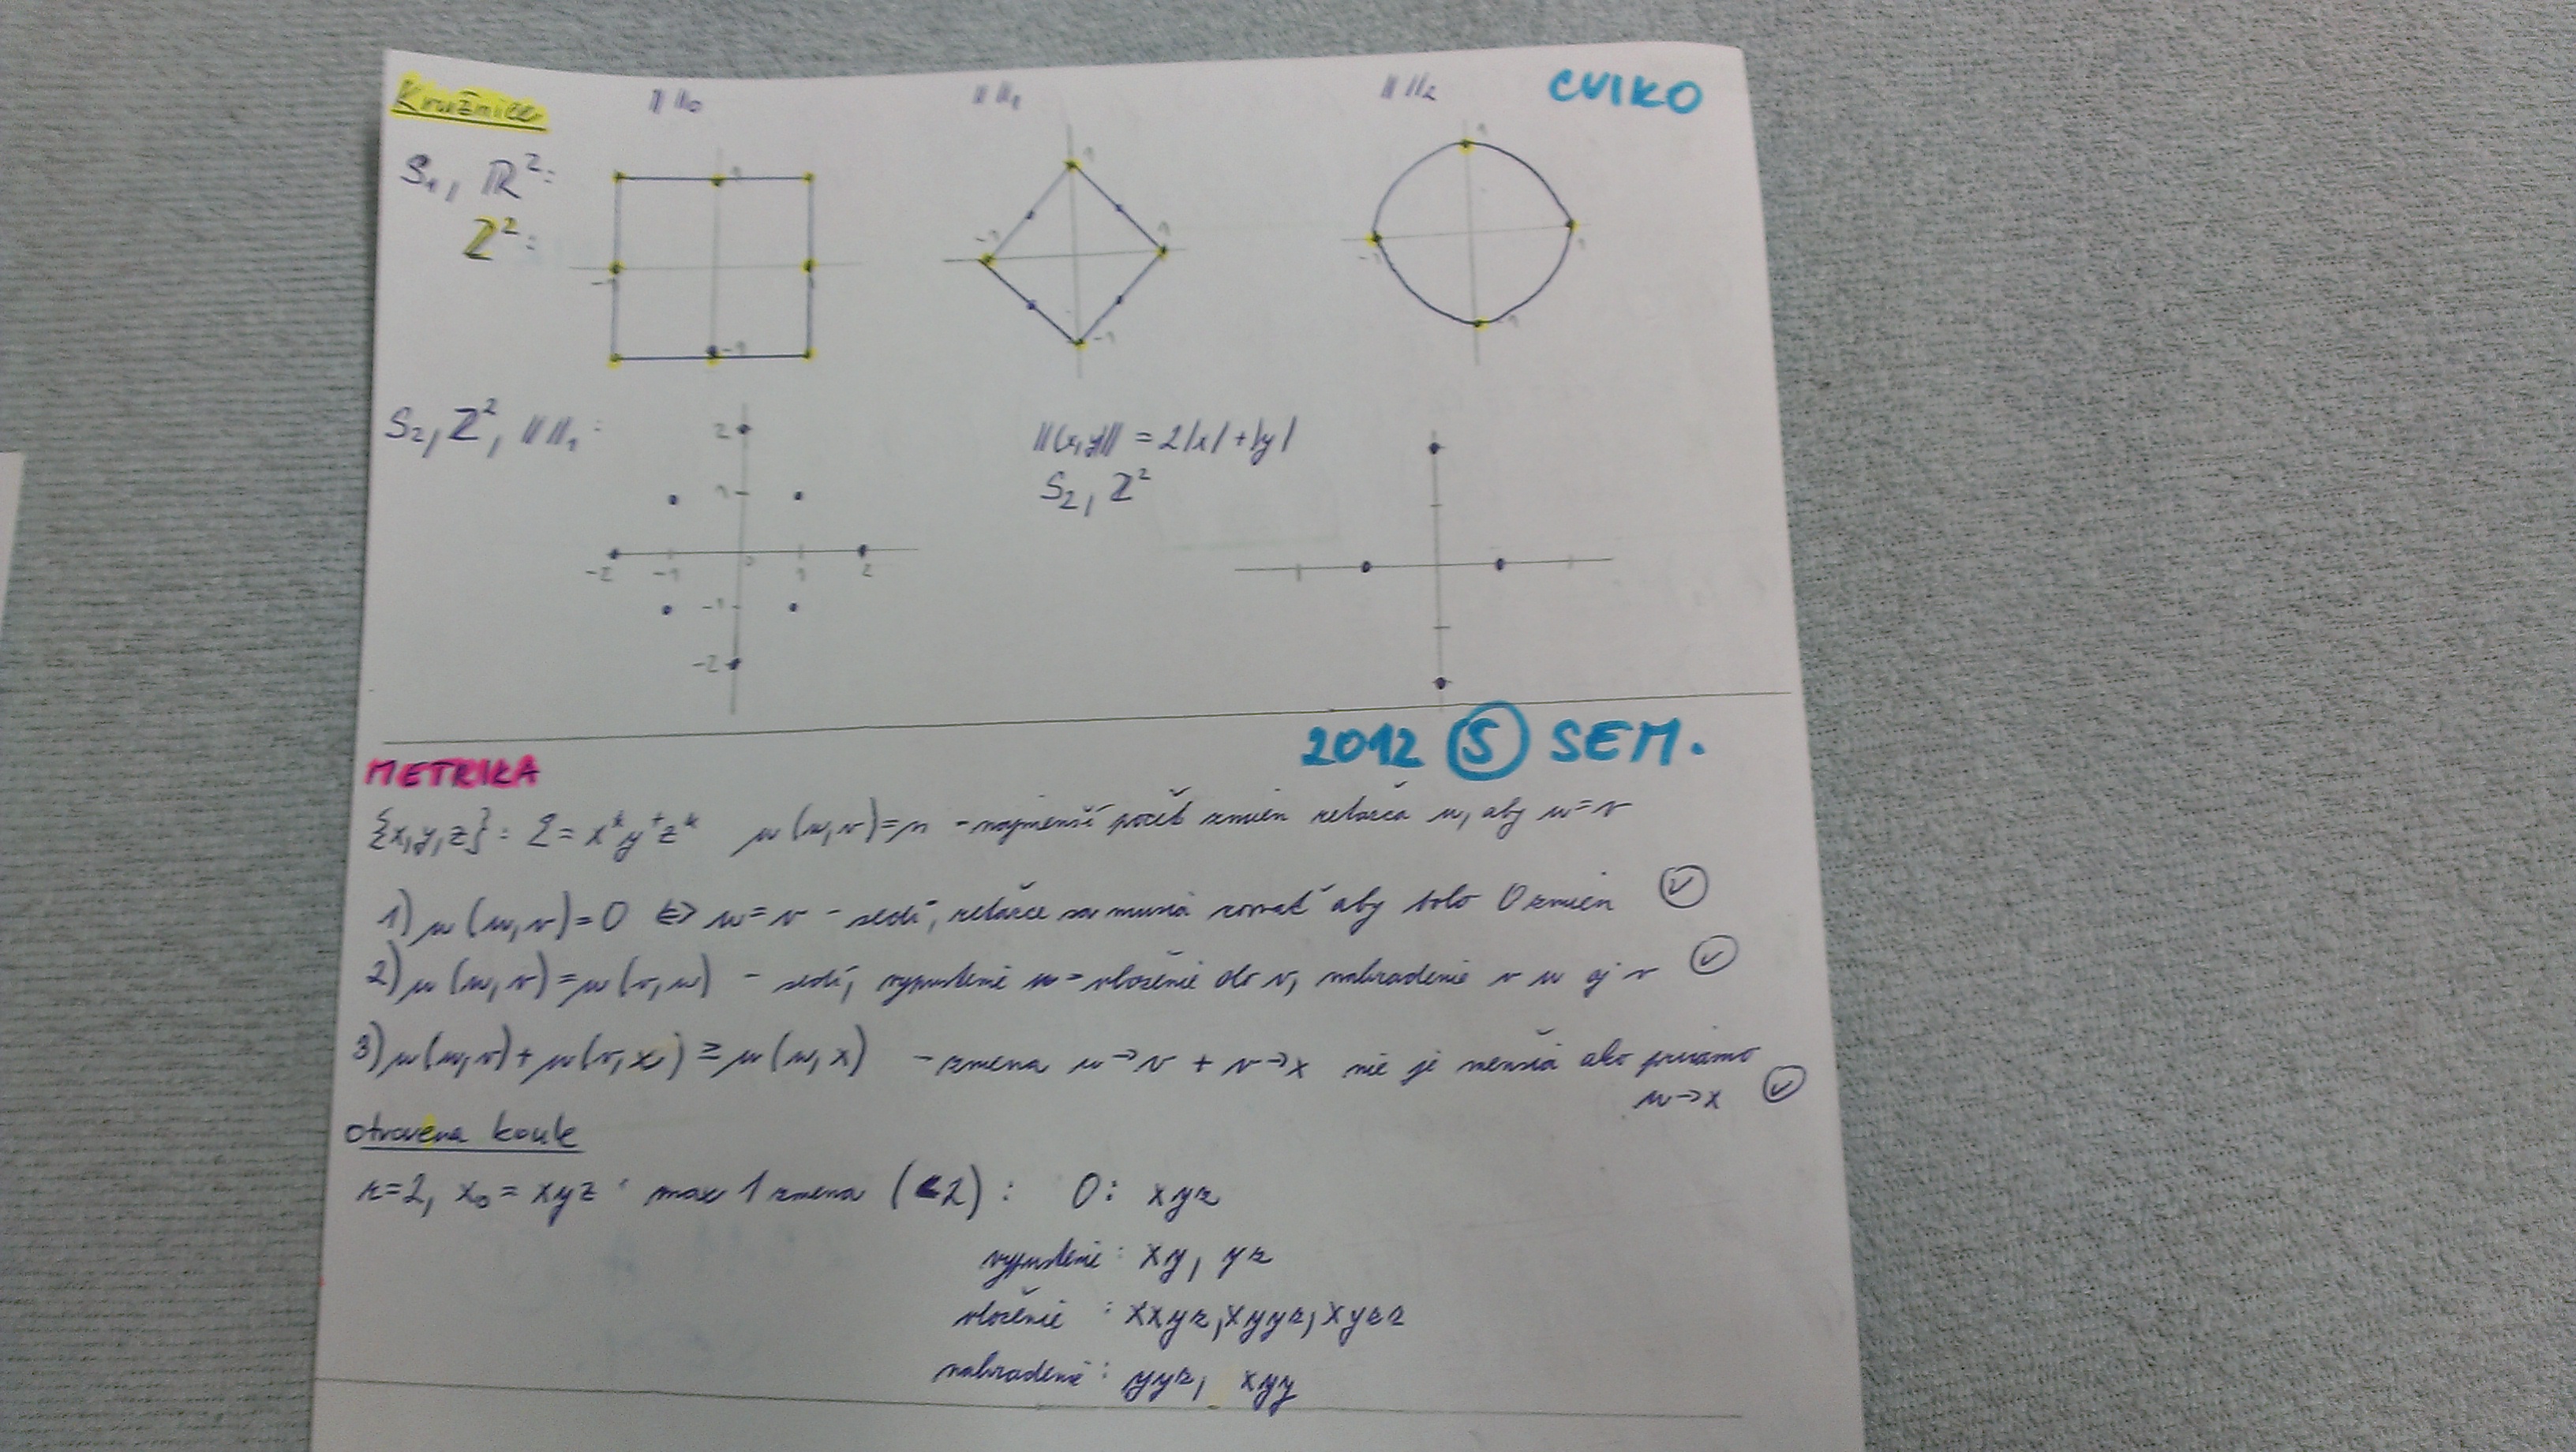 Kružnice ‖ ‖₀ ‖ ‖₁ ‖ ‖₂ CVIKO
S₁, ℝ²:
ℤ²:
1 1 1
-1 1 -1 1 -1 1
-1 -1 -1
S₂, ℤ², ‖ ‖₁: ‖(x,y)‖ = 2|x| + |y|
S₂, ℤ²
2
1
-2 -1 0 1 2
-1
-2
2012 Ⓢ SEM.
METRIKA
{x,y,z}: L = x*y⁺z* μ(u,v)=n - najmenší počet zmien reťazca u, aby u=v
1) μ(u,v)=0 ⇔ u=v - sedí, reťazce sa musia rovnať aby bolo 0 zmien ✓
2) μ(u,v)=μ(v,u) - sedí, vypustenie u = vloženie do v, nahradenie v u aj v ✓
3) μ(u,v) + μ(v,x) ≥ μ(u,x) - zmena u→v + v→x nie je menšia ako priamo
u→x ✓
otvorená koule
r=2, x₀ = xyz : max 1 zmena (<2): 0: xyz
vypustenie: xy, yz
vloženie : xxyz, xyyz, xyzz
nahradenie: yyz, xyy